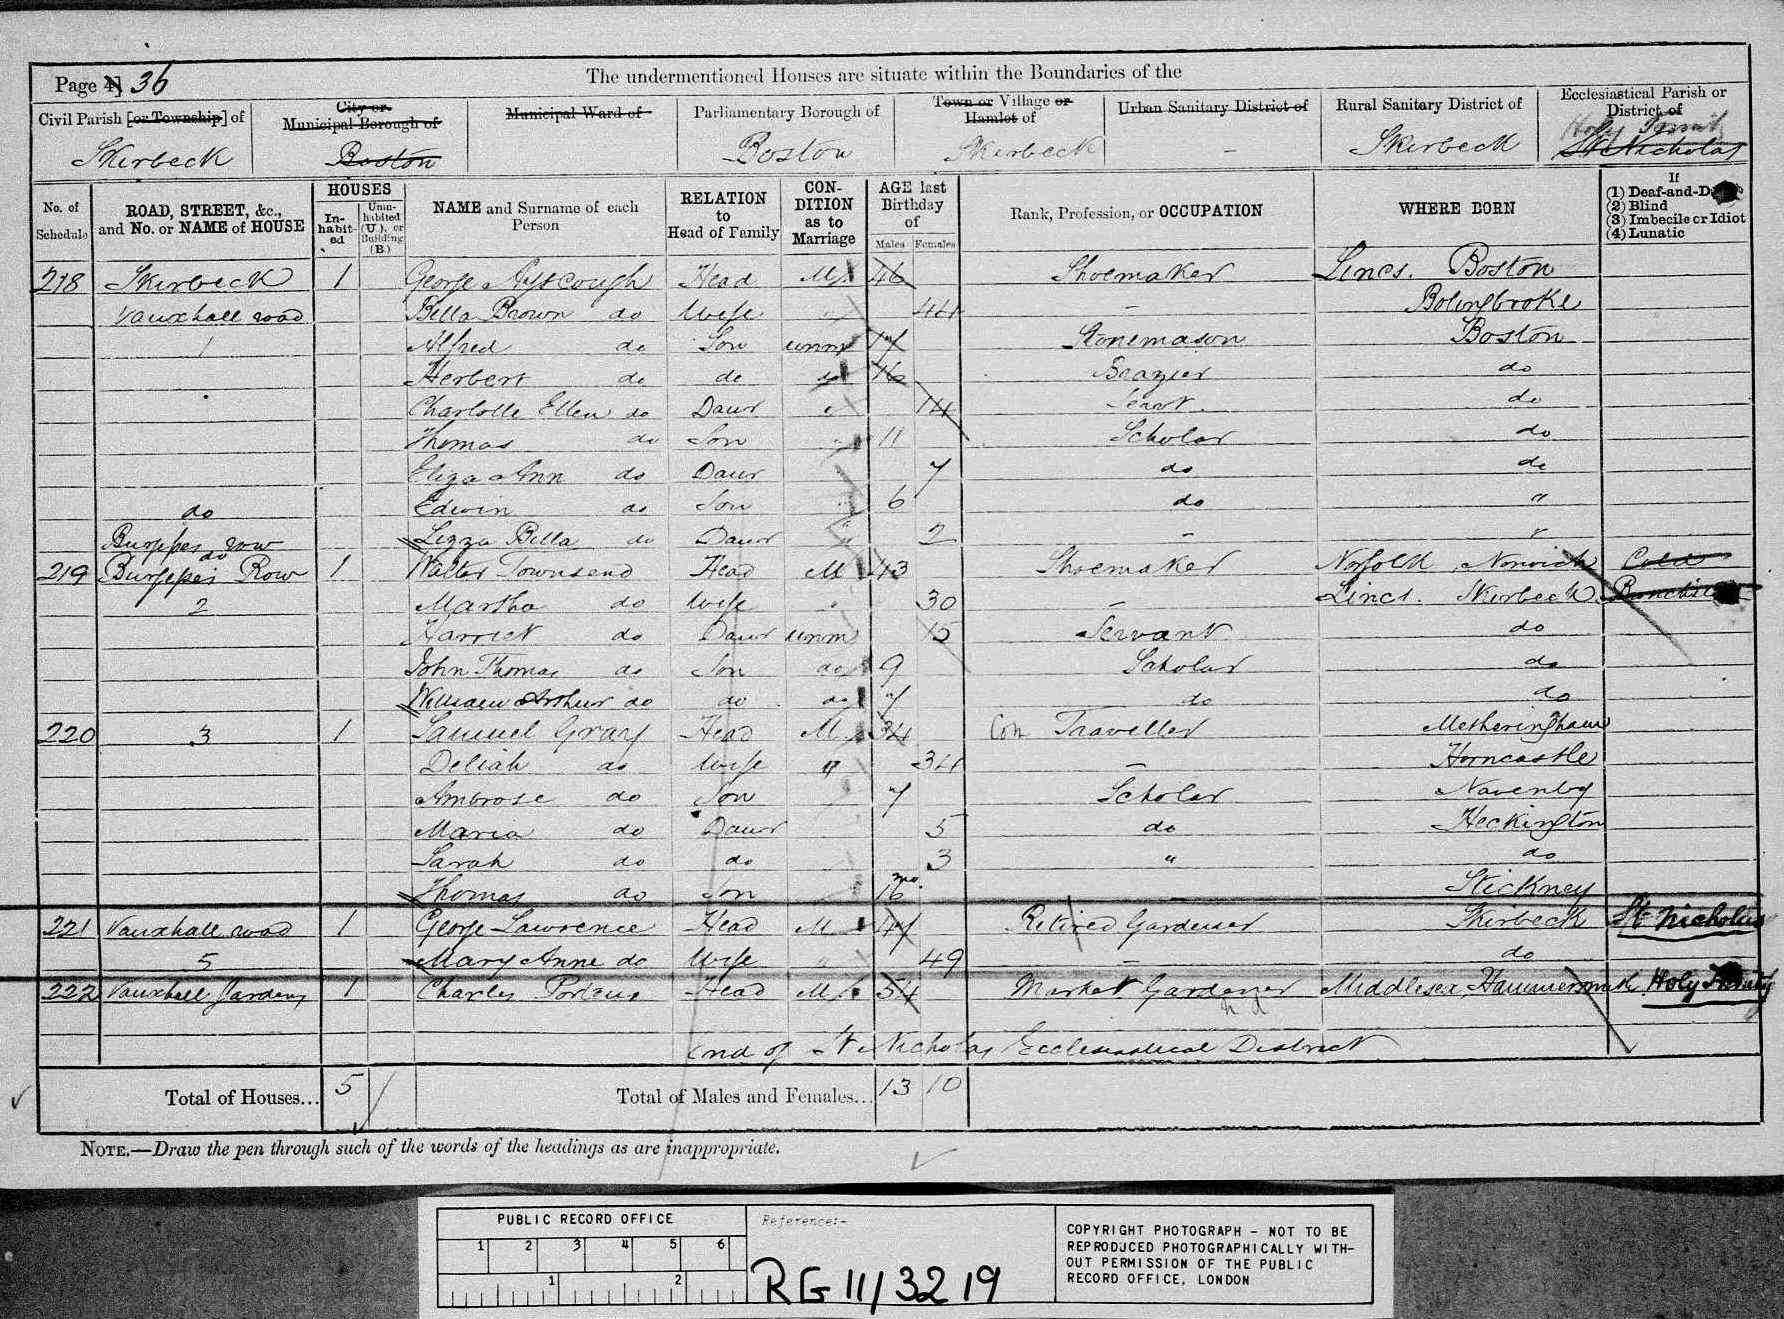 Page 4] 36
The undermentioned Houses are situate within the Boundaries of the
Civil Parish [or Township] of
City or Municipal Borough of
Municipal Ward of
Parliamentary Borough of
Town or Village or Hamlet of
Urban Sanitary District of
Rural Sanitary District of
Ecclesiastical Parish or District of
Skirbeck Boston Boston Skirbeck - Skirbeck Holy Trinity St Nicholas
No. of Schedule
ROAD, STREET, &c., and No. or NAME of HOUSE
HOUSES
In-habit-ed
Unin-habited (U.), or Building (B.)
NAME and Surname of each Person
RELATION to Head of Family
CON-DITION as to Marriage
AGE last Birthday of
Males Females
Rank, Profession, or OCCUPATION
WHERE BORN
If
(1) Deaf-and-D
(2) Blind
(3) Imbecile or Idiot
(4) Lunatic
218 Skirbeck 1 George Ayscough Head M 46 Shoemaker Lincs. Boston
Vauxhall road Bella Brown do Wife " 44 - Bolingbroke
1 Alfred do Son unm 17 Stonemason Boston
Herbert do do do 16 Brazier do
Charlotte Ellen do Daur " 14 Servt do
Thomas do Son " 11 Scholar do
Eliza Ann do Daur 7 do do
do Edwin do Son " 6 do "
Burgess row Lizza Bella do Daur " 2 - "
219 do Burgess Row 1 Walter Townsend Head M 43 Shoemaker Norfolk Norwich
2 Martha do Wife " 30 - Lincs. Skirbeck
Harriet do Daur unm 15 Servant do
John Thomas do Son do 9 Scholar do
William Arthur do do do 7 do do
220 3 1 Samuel Gray Head M 34 Con Traveller Metheringham
Deliah do Wife " 34 - Horncastle
Ambrose do Son 7 Scholar Navenby
Maria do Daur 5 do Heckington
Sarah do do 3 " do
Thomas do Son 16 mo. - Stickney
221 Vauxhall road 1 George Lawrence Head M Retired Gardener Skirbeck St Nicholus
5 Mary Anne do Wife " 49 - do
222 Vauxhall Gardens 1 Charles Porteus Head M 54 Market Gardener Middlesex, Hammersmith Holy Trinity
End of St Nicholas Ecclesiastical District
Total of Houses... 5 Total of Males and Females... 13 10
NOTE.—Draw the pen through such of the words of the headings as are inappropriate.
PUBLIC RECORD OFFICE
1 2 3 4 5 6
1 2
Reference:-
RG 11/3219
COPYRIGHT PHOTOGRAPH - NOT TO BE
REPRODUCED PHOTOGRAPHICALLY WITH-
OUT PERMISSION OF THE PUBLIC
RECORD OFFICE, LONDON